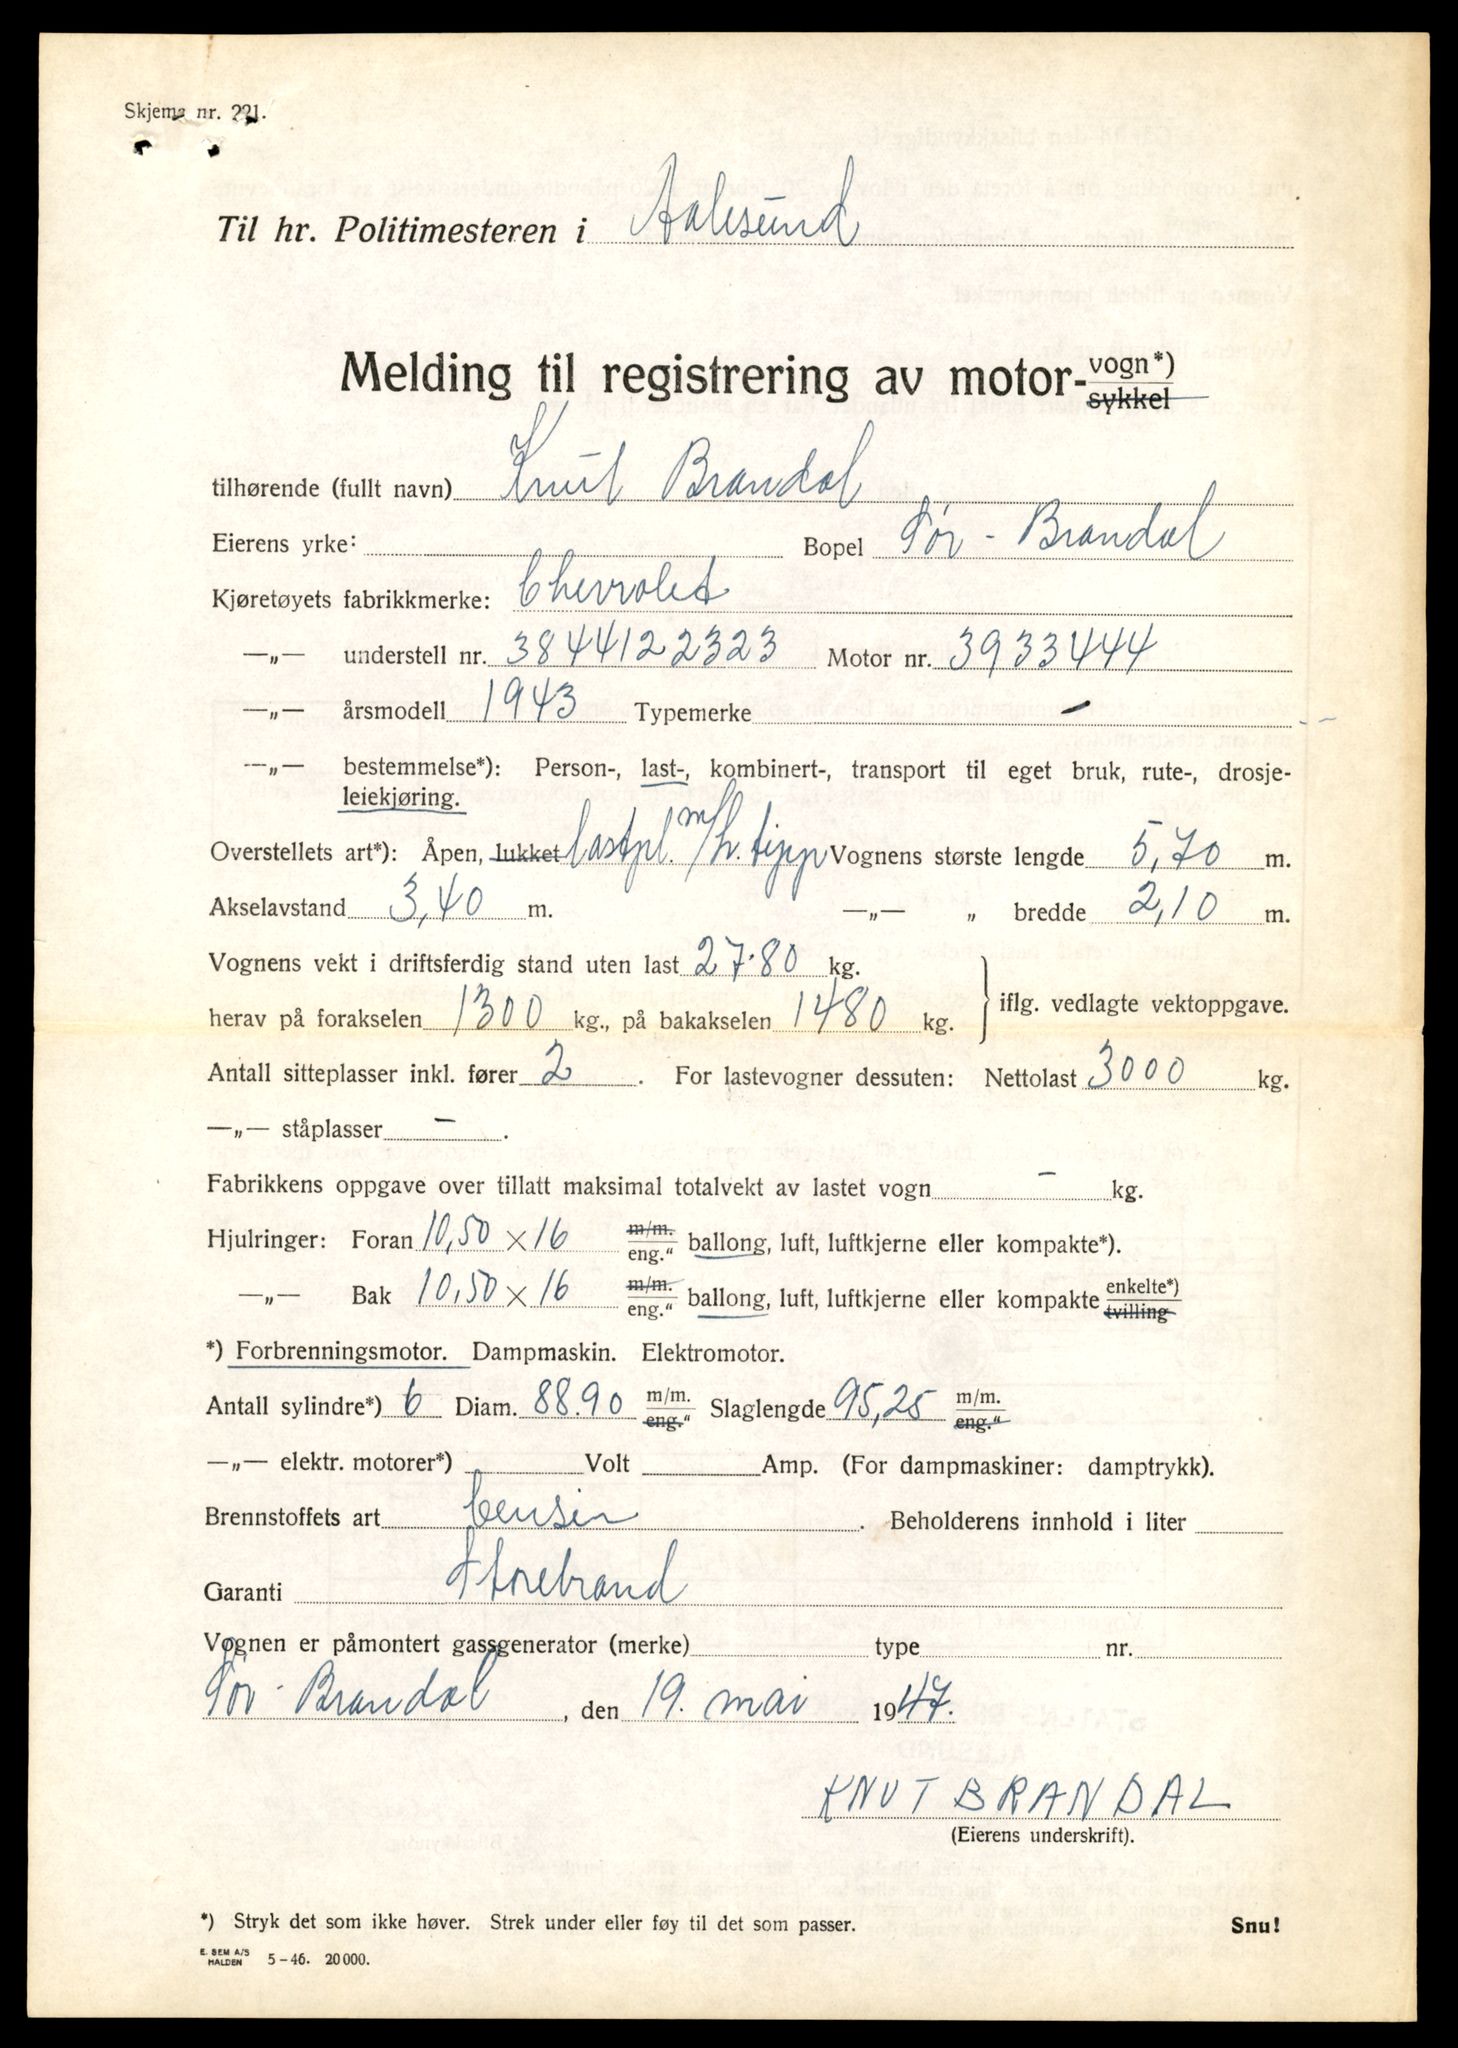 Skjema nr. 221.
Til hr. Politimesteren i Aalesund
Melding til registrering av motor-vogn*)
sykkel
tilhørende (fullt navn) Knut Brandal
Eierens yrke: Bopel Sør-Brandal
Kjøretøyets fabrikkmerke: Chevrolet
—„— understell nr. 3844122323 Motor nr. 3933444
—„— årsmodell 1943 Typemerke –
—„— bestemmelse*): Person-, last-, kombinert-, transport til eget bruk, rute-, drosje-
leiekjøring.
Overstellets art*): Åpen, lukket lastpl. m/h. tipp Vognens største lengde 5,70 m.
Akselavstand 3,40 m. —„— „ bredde 2,10 m.
Vognens vekt i driftsferdig stand uten last 27.80 kg.
herav på forakselen 1300 kg., på bakakselen 1480 kg. iflg. vedlagte vektoppgave.
Antall sitteplasser inkl. fører 2. For lastevogner dessuten: Nettolast 3000 kg.
—„— ståplasser – .
Fabrikkens oppgave over tillatt maksimal totalvekt av lastet vogn – kg.
Hjulringer: Foran 10,50 × 16 m/m. eng.“ ballong, luft, luftkjerne eller kompakte*).
—„— Bak 10,50 × 16 m/m. eng.“ ballong, luft, luftkjerne eller kompakte enkelte*) tvilling
*) Forbrenningsmotor. Dampmaskin. Elektromotor.
Antall sylindre*) 6 Diam. 88.90 m/m. eng.“ Slaglengde 95,25 m/m. eng.“
—„— elektr. motorer*) Volt Amp. (For dampmaskiner: damptrykk).
Brennstoffets art bensin. Beholderens innhold i liter
Garanti Storebrand
Vognen er påmontert gassgenerator (merke) type nr.
Sør-Brandal, den 19. mai 1947.
KNUT BRANDAL
(Eierens underskrift).
*) Stryk det som ikke høver. Strek under eller føy til det som passer. Snu!
E. SEM A/S
HALDEN 5-46. 20 000.